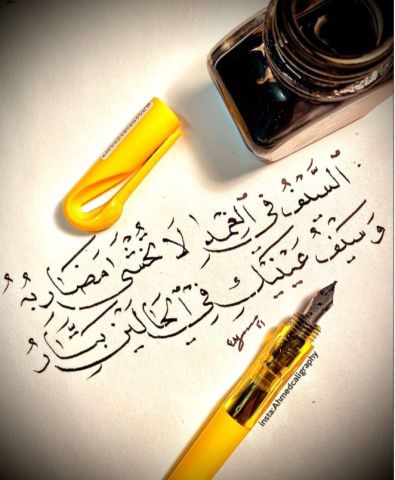 السَّيْفُ فِي الْغِمْدِ لَا تُخْشَى مَضَارِبُهُ
وَسَيْفُ عَيْنَيْكِ فِي الْحَالَيْنِ بَتَّارُ
insta:Ahmedcaligraphy